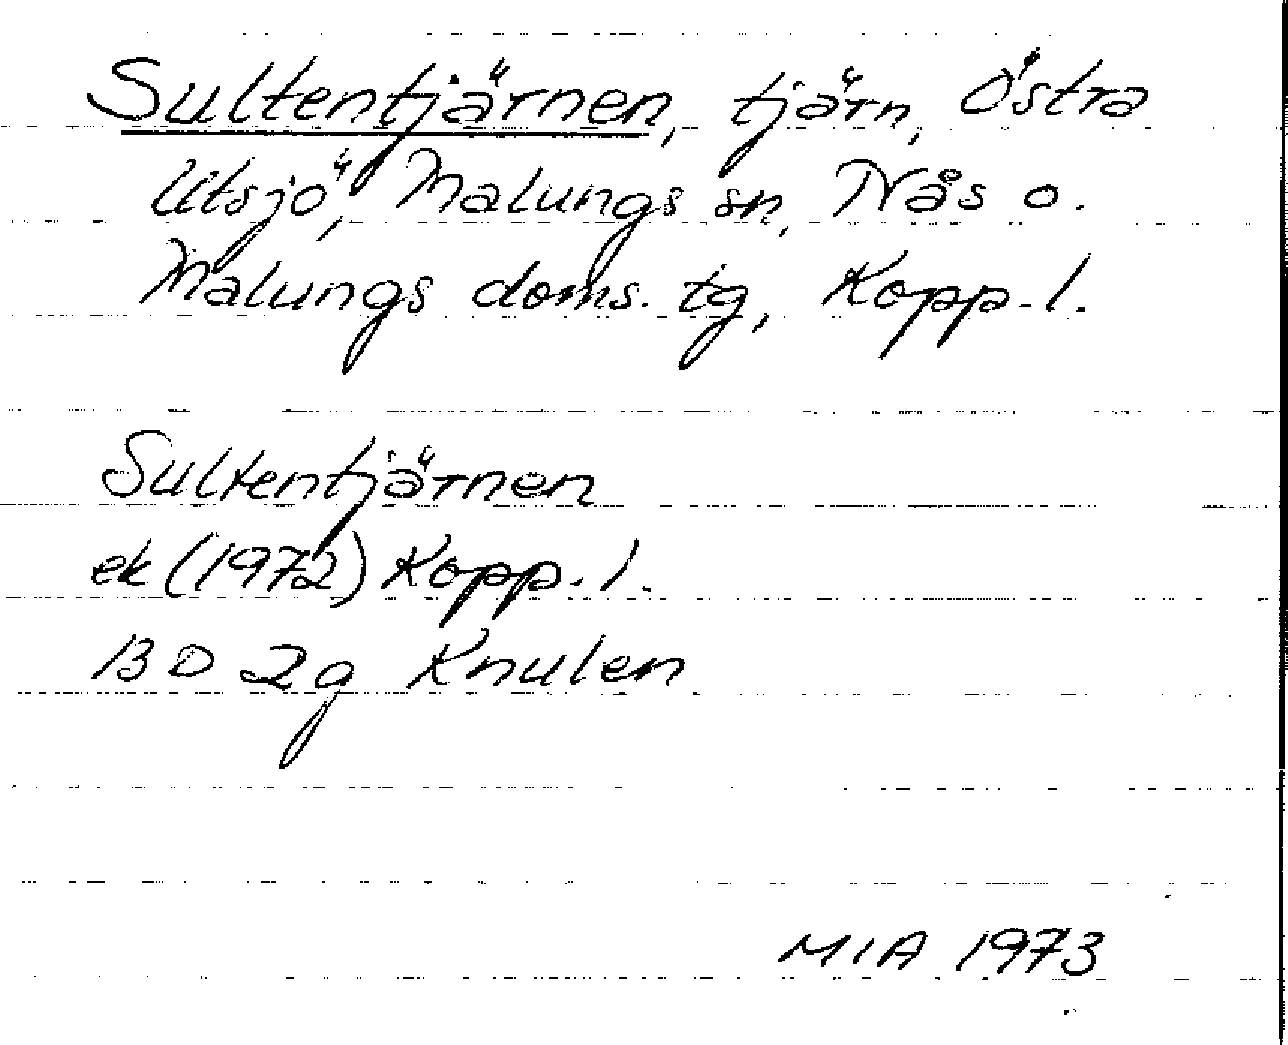 Sultentjärnen, tjärn, Östra
Utsjö, Malungs sn, Nås o.
Malungs doms. tg, Kopp. l.
Sultentjärnen
ek (1972) Kopp. l.
13 D 2g Knulen
MIA 1973